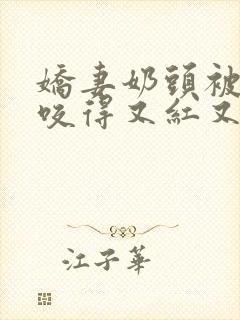 嬌妻奶頭被
咬得又紅又
江子華